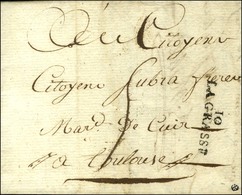 Citoyens
Citoyens Subra freres
Mard. De Cuir
a Toulouse
10
LAGRASSE